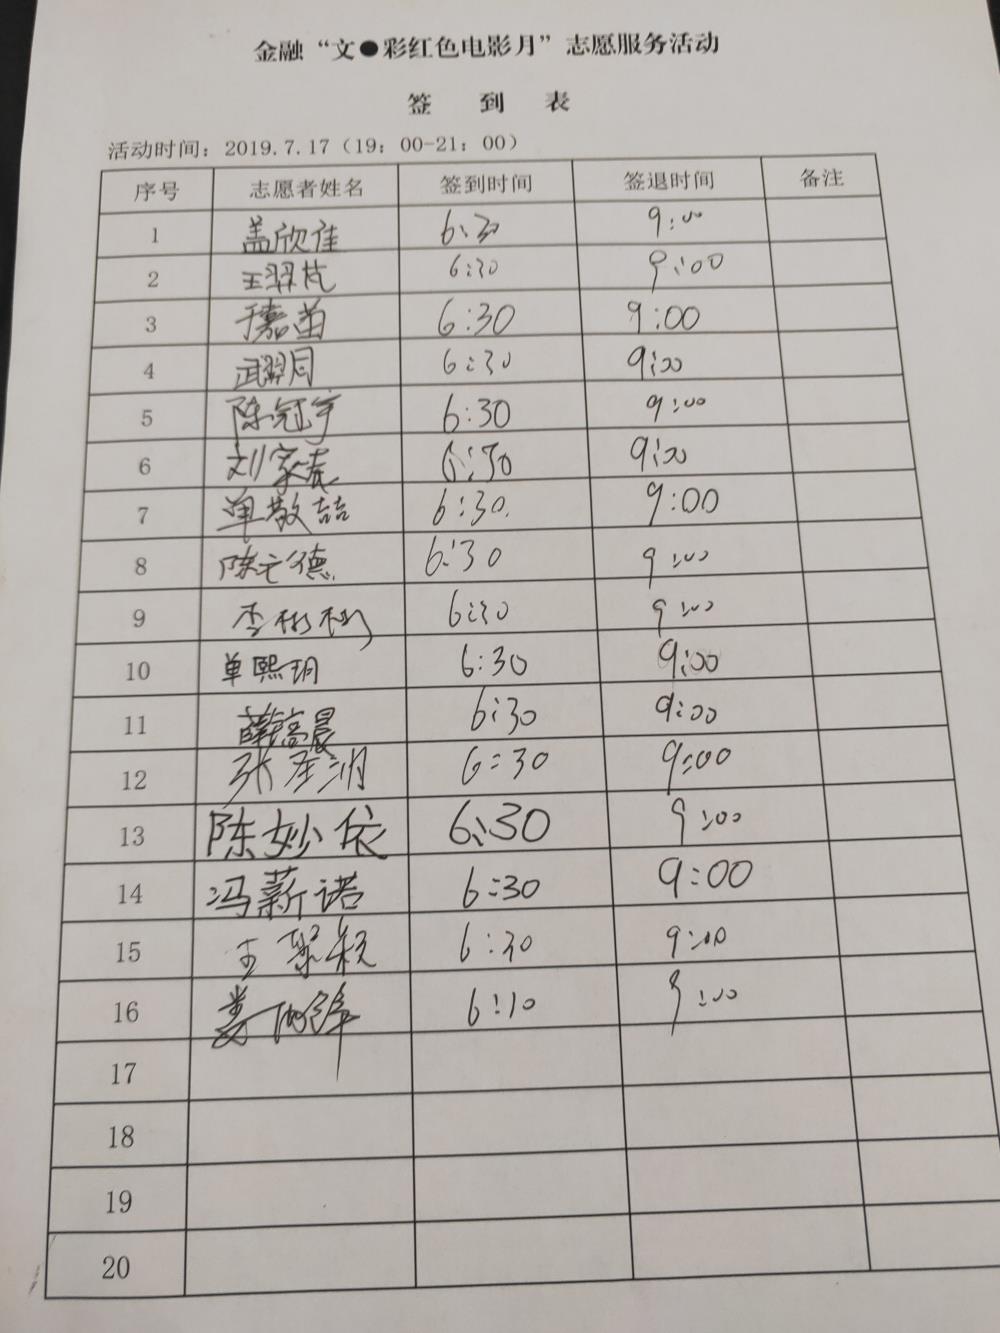 金融“文●彩红色电影月”志愿服务活动
签 到 表
活动时间：2019.7.17（19：00-21：00）
序号 志愿者姓名 签到时间 签退时间 备注
1 盖欣佳 6:30 9:00
2 王羿芃 6:30 9:00
3 于嘉苗 6:30 9:00
4 武翠月 6:30 9:00
5 陈冠宇 6:30 9:00
6 刘家志 6:30 9:00
7 单敬喆 6:30 9:00
8 陈立德 6:30 9:00
9 李彬彬 6:30 9:00
10 单熙玥 6:30 9:00
11 薛皓晨 6:30 9:00
12 张圣润 6:30 9:00
13 陈妙依 6:30 9:00
14 冯薪诺 6:30 9:00
15 王 6:30 9:00
16 6:10 9:00
17
18
19
20